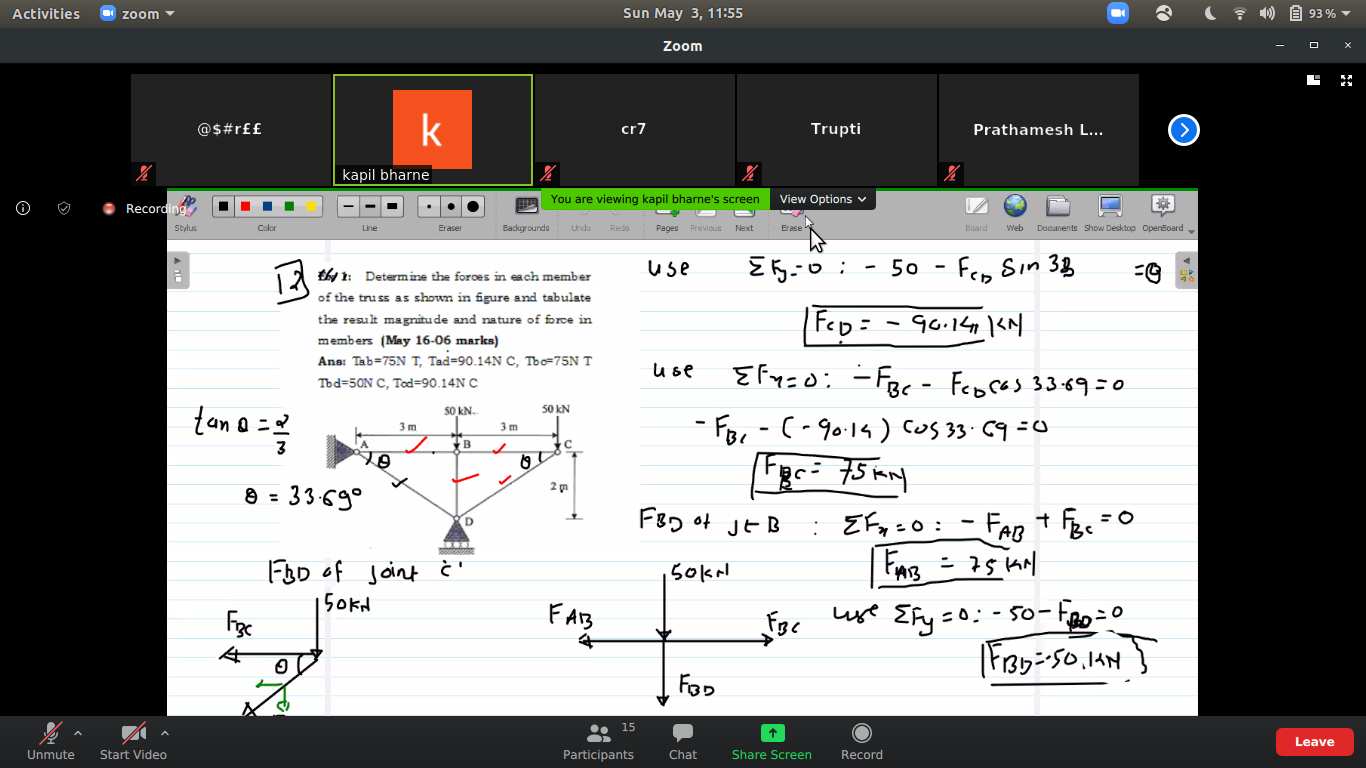 Activities
zoom
Sun May 3, 11:55
93 %
Zoom
@$#r££
k
kapil bharne
cr7
Trupti
Prathamesh L...
Recording
You are viewing kapil bharne's screen
View Options
Stylus
Color
Line
Eraser
Backgrounds
Undo
Redo
Pages
Previous
Next
Erase
Board
Web
Documents
Show Desktop
OpenBoard
12
Determine the forces in each member
of the truss as shown in figure and tabulate
the result magnitude and nature of force in
members (May 16-06 marks)
Ans: Tab=75N T, Tad=90.14N C, Tbc=75N T
Tbd=50N C, Tcd=90.14N C
tan θ = 2/3
θ = 33.69°
50 kN
50 kN
3 m
3 m
A
B
C
θ
θ
2 m
D
FBD of joint 'C'
50KN
F_BC
θ
50KN
F_AB
F_BC
F_BD
use ΣFy=0 : - 50 - F_CD Sin 33 =0
F_CD = - 90.14 KN
use ΣFx=0: -F_BC - F_CD cos 33.69=0
- F_BC - (-90.14) cos 33.69=0
F_BC = 75 KN
FBD of jt B : ΣFx=0: - F_AB + F_BC = 0
F_AB = 75 KN
use ΣFy=0: -50-F_BD=0
F_BD=-50.KN
Unmute
Start Video
Participants
15
Chat
Share Screen
Record
Leave